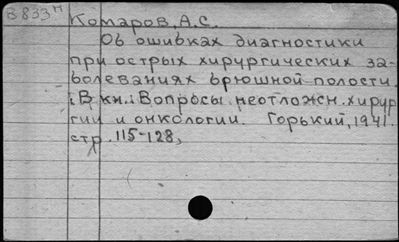 В 833н
Комаров, А.С.
Об ошибках диагностики
при острых хирургических за-
болеваниях брюшной полости.
В кн.: Вопросы неотложн. хирур
гии и онкологии. Горький, 1941.
стр. 115-128,